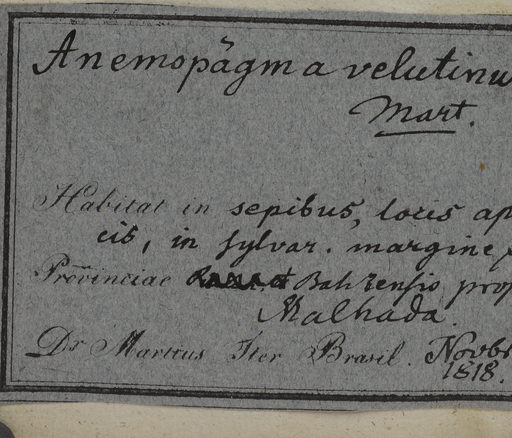 Anemopägma velutinu
Mart.
Habitat in sepibus, locis ap
cis, in sylvar. margine
Provinciae Bahiensis prop
Malhada
Dr Martius Iter Brasil. Novbr
1818.